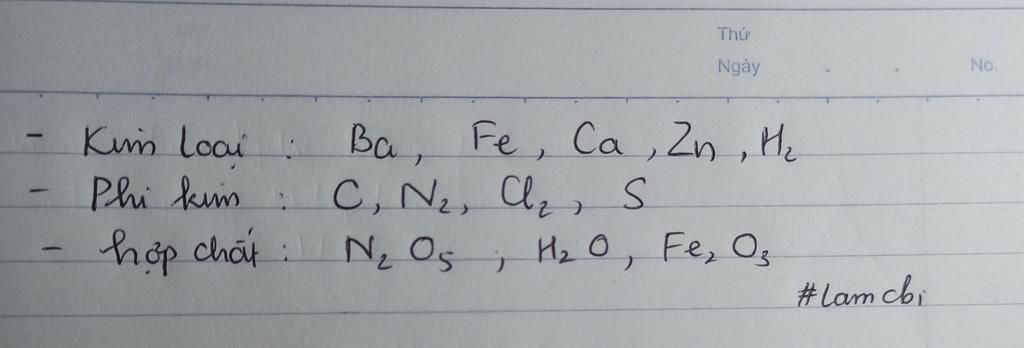 Thứ
Ngày . . No.
- Kim loại : Ba, Fe, Ca, Zn, H₂
- Phi kim : C, N₂, Cl₂, S
- hợp chất : N₂O₅ ; H₂O, Fe₂O₃
#lamcbi